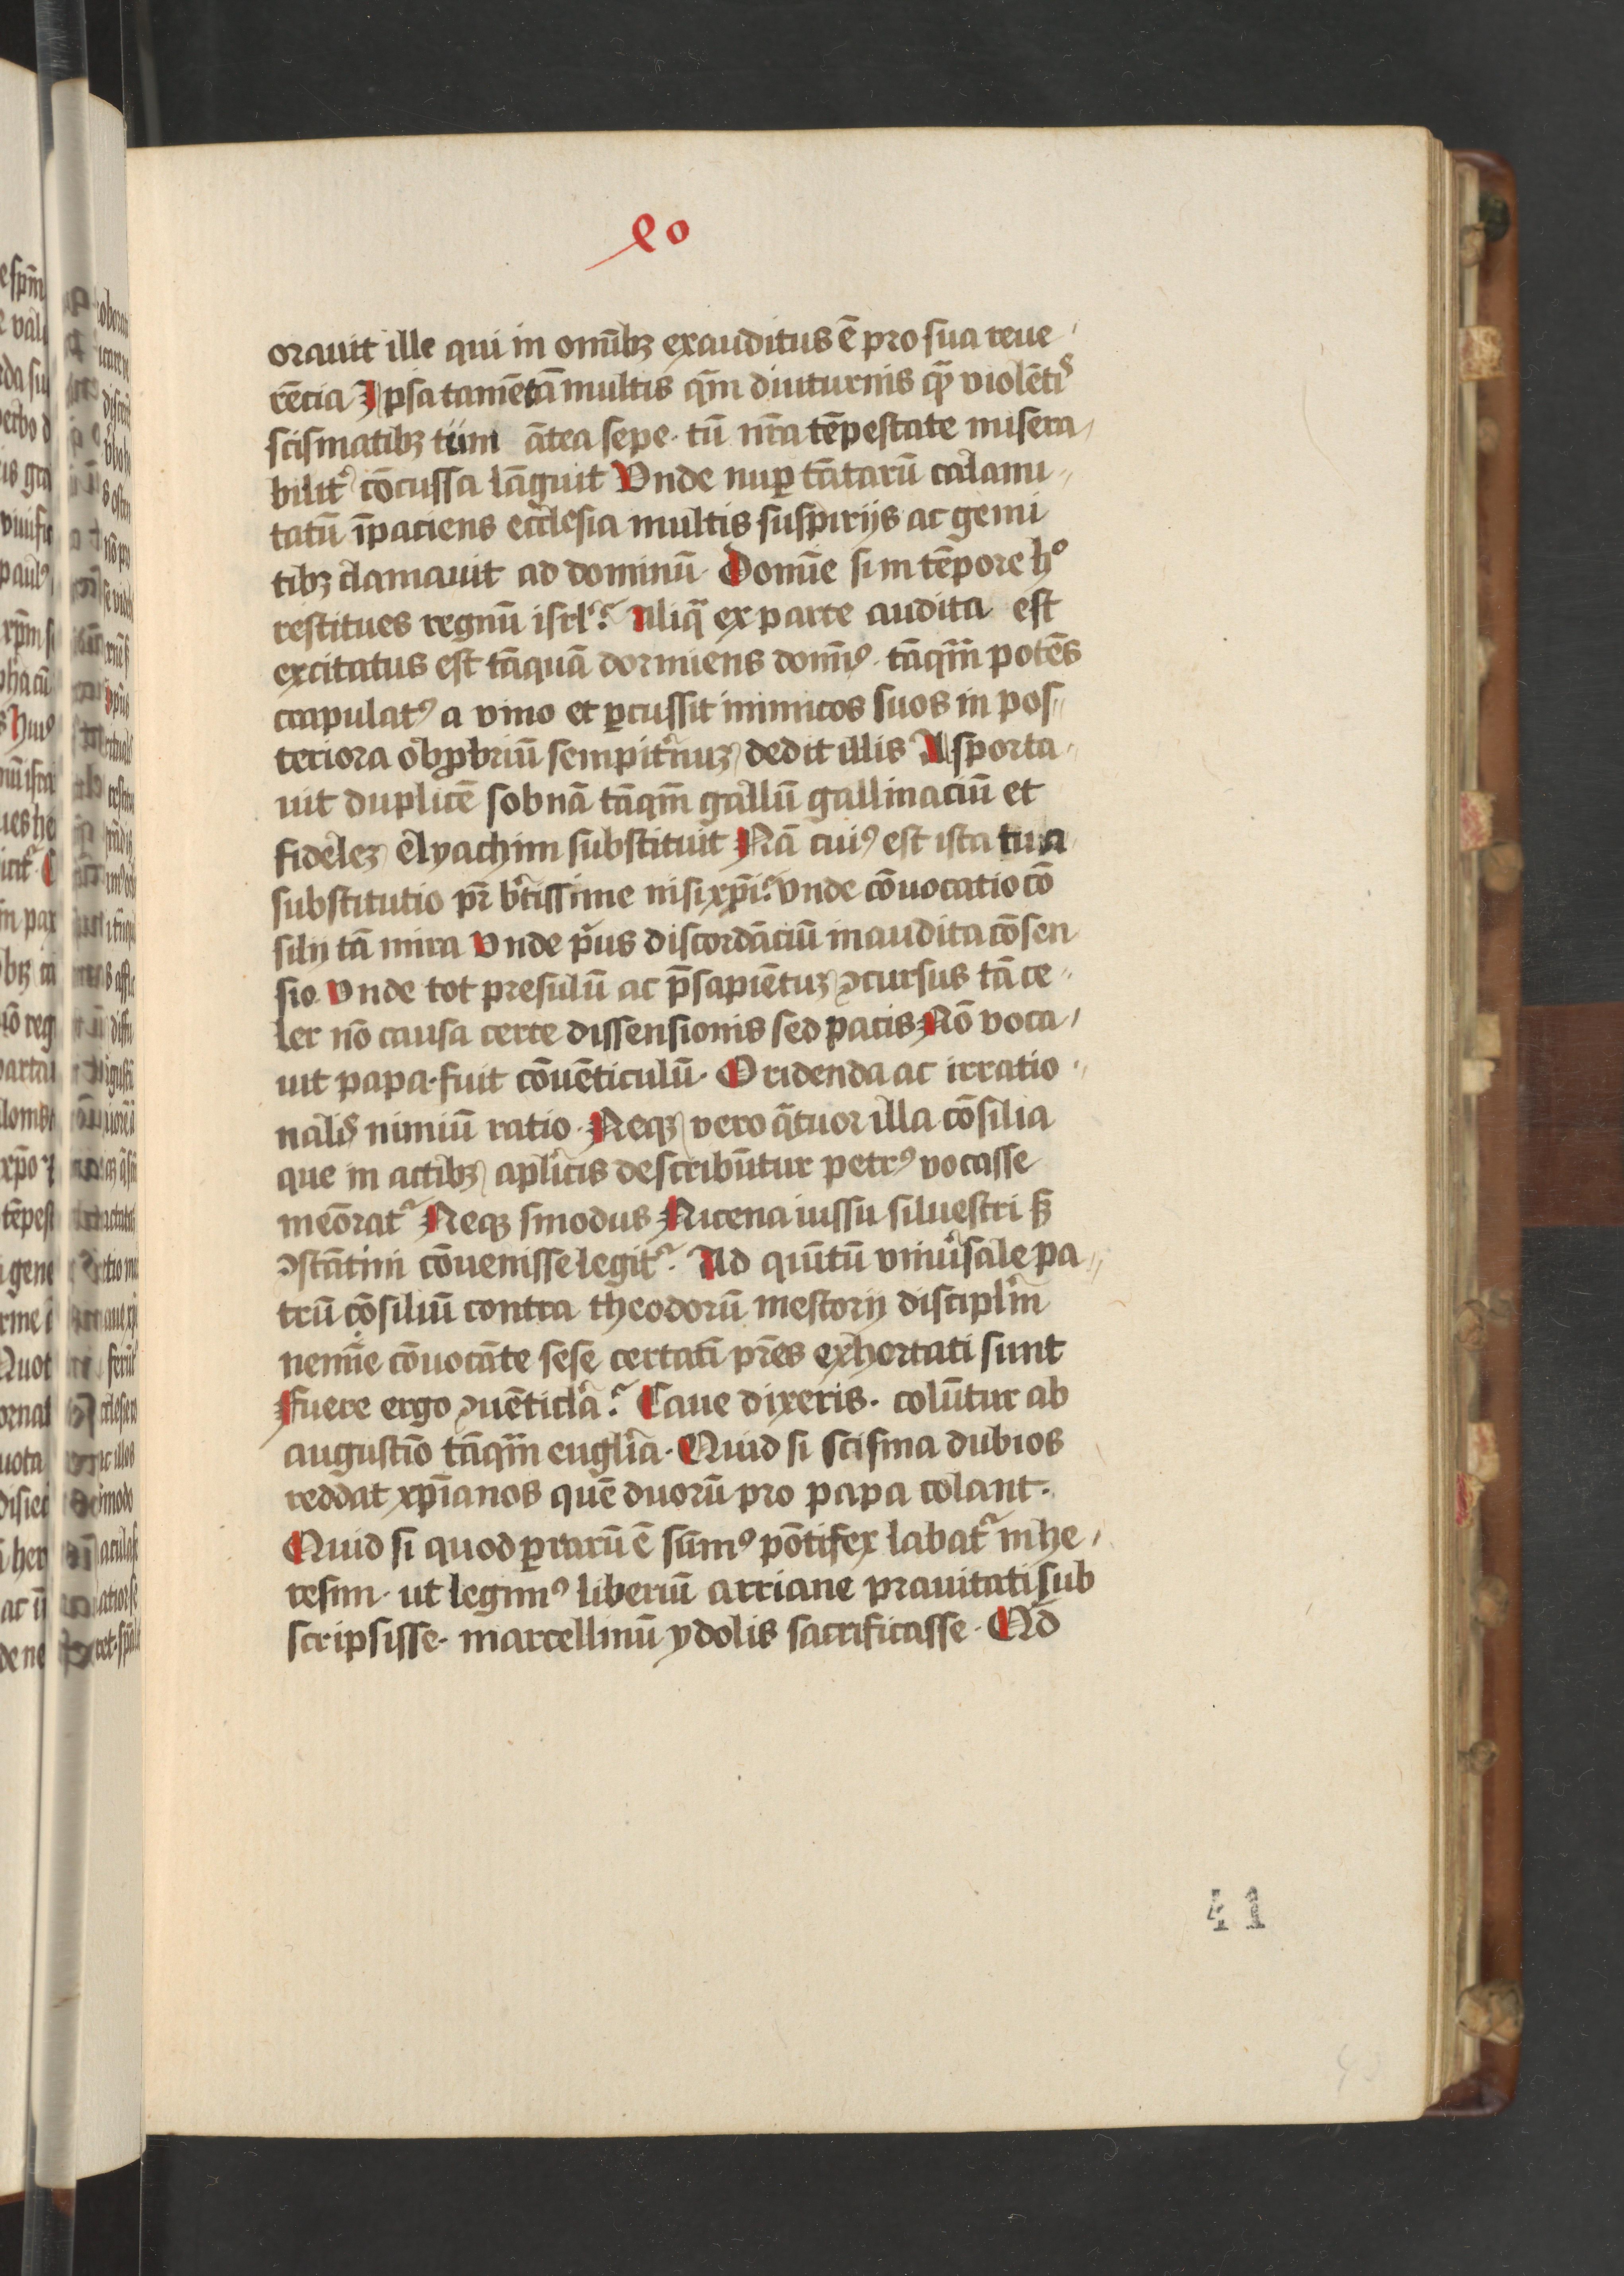 40
orauit ille qui in om̄ibꝫ exauditus ē pro sua reue
rēcia Ipsa tamē tā multis qm̄ diuturnis qꝫ violēti
scismatibꝫ tum ātea sepe · tū nr̄a tēpestate misera
bilit᷑ cōcussa lāguit Vnde nuꝑ tātarū calami
tatū īpaciens eccl̄esia multis suspirijs ac gemi
tibꝫ clamauit ad dominū Domīe si in tēpore hº
restitues regnū isrl̄? Aliq̄ ex parte audita est
excitatus est tāquā dormiens domīꝰ · tāqm̄ potēs
crapulatꝰ a vino et ꝑcussit inimicos suos in pos
teriora obꝓbriū sempit᷑nuꝫ dedit illis Asporta
uit duplicē sobnā tāqm̄ gallū gallinaciū et
fidelēꝫ elyachim substituit Nā cuiꝰ est ista tua
substitutio pr̄ btīssime nisi xp̄i? vnde cōuocatio cō
silij tā mira Vnde pͥus discordāciū inaudita cōsen
sio Vnde tot presulū ac p̄sapiētuꝫ ꝯcursus tā ce
ler nō causa certe dissensionis sed pacis Nō voca
uit papa · fuit cōuēticulū · O ridenda ac irratio
nalis nimiū ratio · Neqꝫ vero qͣtuor illa cōsilia
que in actibꝫ apl̄icis describūtur petrꝰ vocasse
meōrat᷑ Neqꝫ sinodus Nicena iussu siluestri sꝫ
ꝯstātini cōuenisse legit᷑ · Ad quītū vniu᷑sale pa
trū cōsiliū contra theodorū nestorij discipl̄m
nemīe cōuocāte sese certatī pr̄es exhortati sunt
Fuere ergo ꝯuēticl̄a? Caue dixeris · colūtur ab
augustīo tāqm̄ eugl̄ia · Quid si scisma dubios
reddat xp̄ianos quē duorū pro papa colant ·
Quid si quod ꝑrarū ē sūmꝰ pōtifex labat᷑ in he
resim · ut legimꝰ liberiū arriane prauitati sub
scripsisse · marcellinū ydolis sacrificasse · Qd̄
41